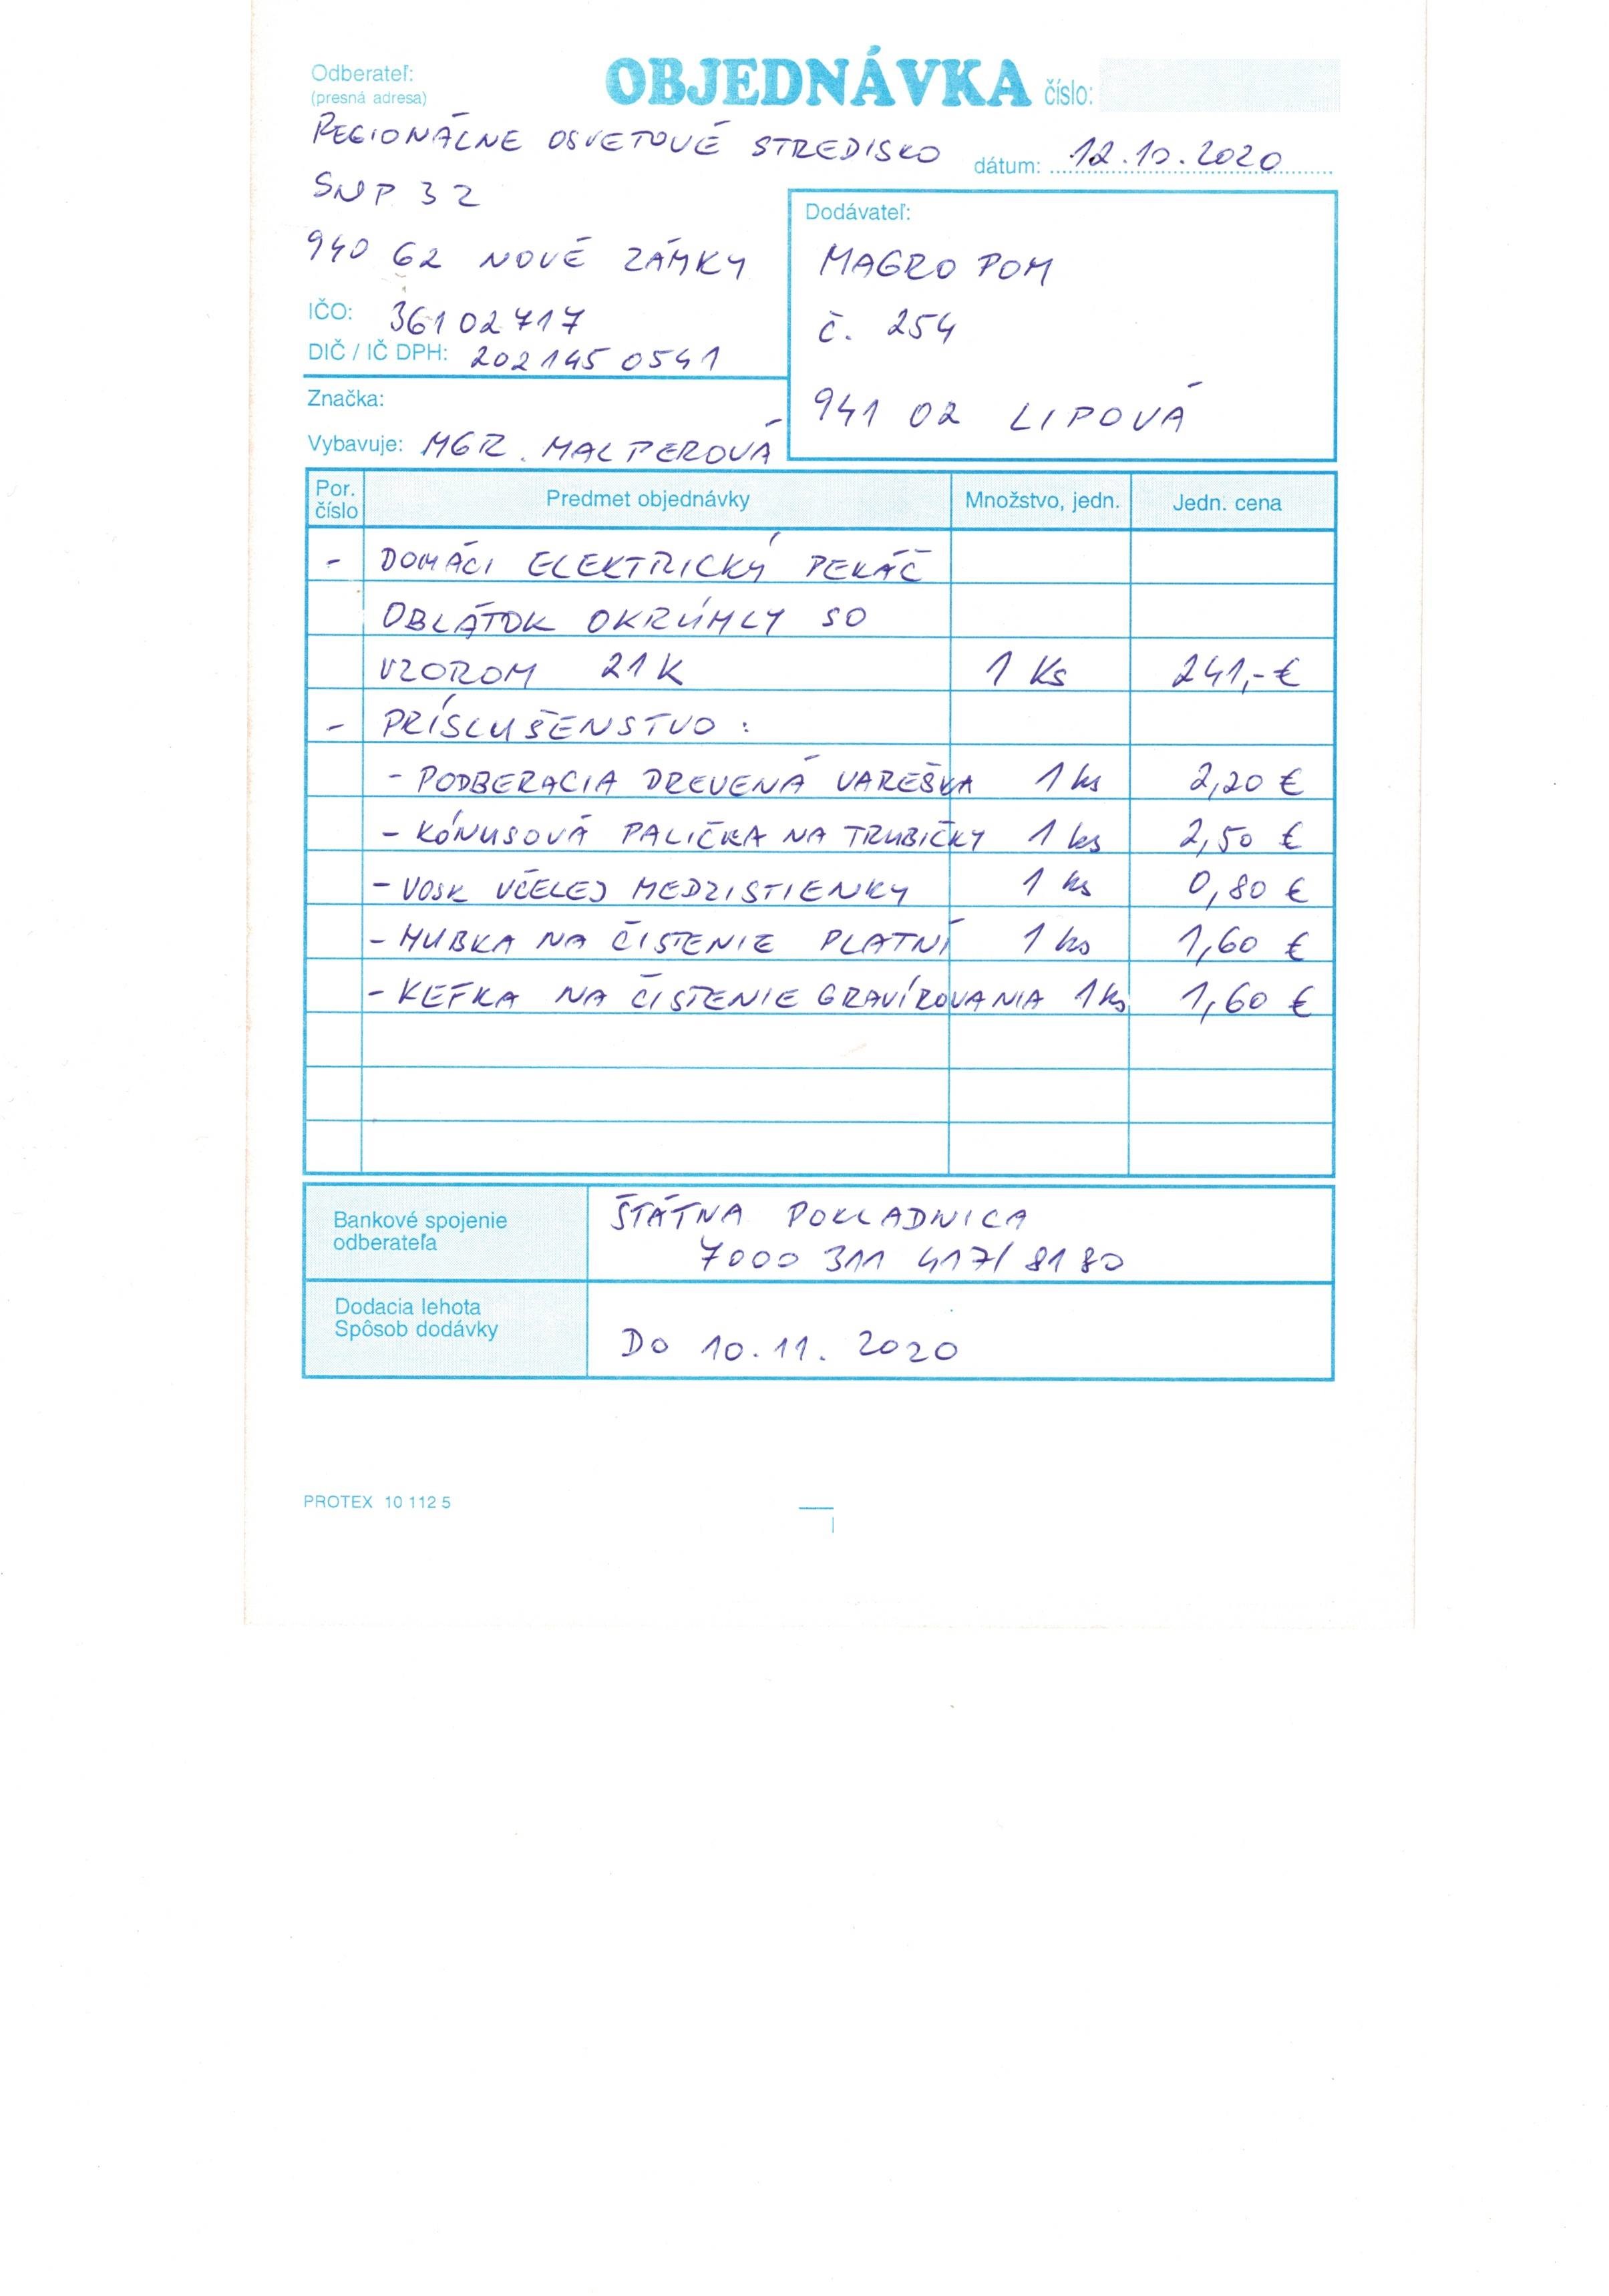 Odberateľ:
(presná adresa)
OBJEDNÁVKA číslo:
REGIONÁLNE OSVETOVÉ STREDISKO
dátum: 12.10.2020
SNP 32
940 62 NOVÉ ZÁMKY
IČO: 36102717
DIČ / IČ DPH: 202145 0541
Značka:
Vybavuje: MGR. MALPEROVÁ
Dodávateľ:
MAGRO POM
č. 254
941 02 LIPOVÁ
Por. číslo Predmet objednávky Množstvo, jedn. Jedn. cena
- DOMÁCI ELEKTRICKÝ PEKÁČ
OBLÁTOK OKRÚHLY SO
VZOROM 21K 1 Ks 241,- €
- PRÍSLUŠENSTVO :
- PODBERACIA DREVENÁ VAREŠKA 1 ks 2,20 €
- KÓNUSOVÁ PALIČKA NA TRUBIČKY 1 ks 2,50 €
- VOSK VČELEJ MEDZISTIENKY 1 ks 0,80 €
- HUBKA NA ČISTENIE PLATNÍ 1 ks 1,60 €
- KEFKA NA ČISTENIE GRAVÍROVANIA 1 ks 1,60 €
Bankové spojenie
odberateľa
ŠTÁTNA POKLADNICA
7000 311 417/ 8180
Dodacia lehota
Spôsob dodávky
DO 10.11. 2020
PROTEX 10 112 5